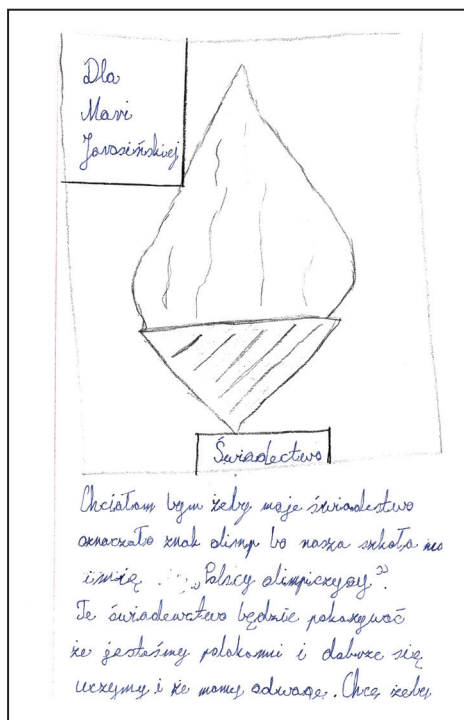 Dla
Mari
Jarosińskiej
Świadectwo
Chciałam bym żeby moje świadestwo
oznaczało znak olimp bo nasza szkoła ma
imię „Polscy olimpiczycy”.
Te świadewstwo będzie pokazywać
że jesteśmy polakami i dobrze się
uczymy i że mamy odwagę. Chcę żeby